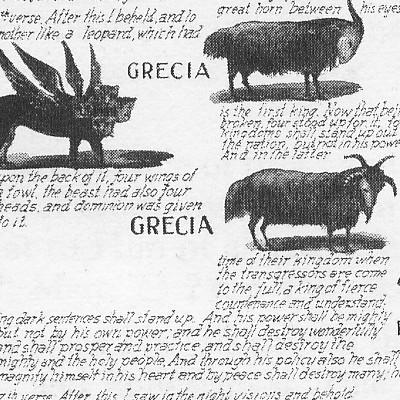 great horn between his eyes
verse. After this I beheld, and lo
another like a leopard, which had
GRECIA
is the first king. Now that being
broken, four stood up for it, four
kingdoms shall stand up out
the nation, but not in his power
And in the latter
upon the back of it, four wings of
a fowl, the beast had also four
heads, and dominion was given
to it.
GRECIA
time of their kingdom when
the transgressors are come
to the full, a king of fierce
countenance and understand.
ing dark sentences shall stand up. And his power shall be mighty
but not by his own power; and he shall destroy wonderfully
and shall prosper and practice, and shall destroy the
mighty and the holy people. And through his policy also he shall
magnify himself in his heart and by peace shall destroy many; he
7th verse. After this I saw in the night visions and behold